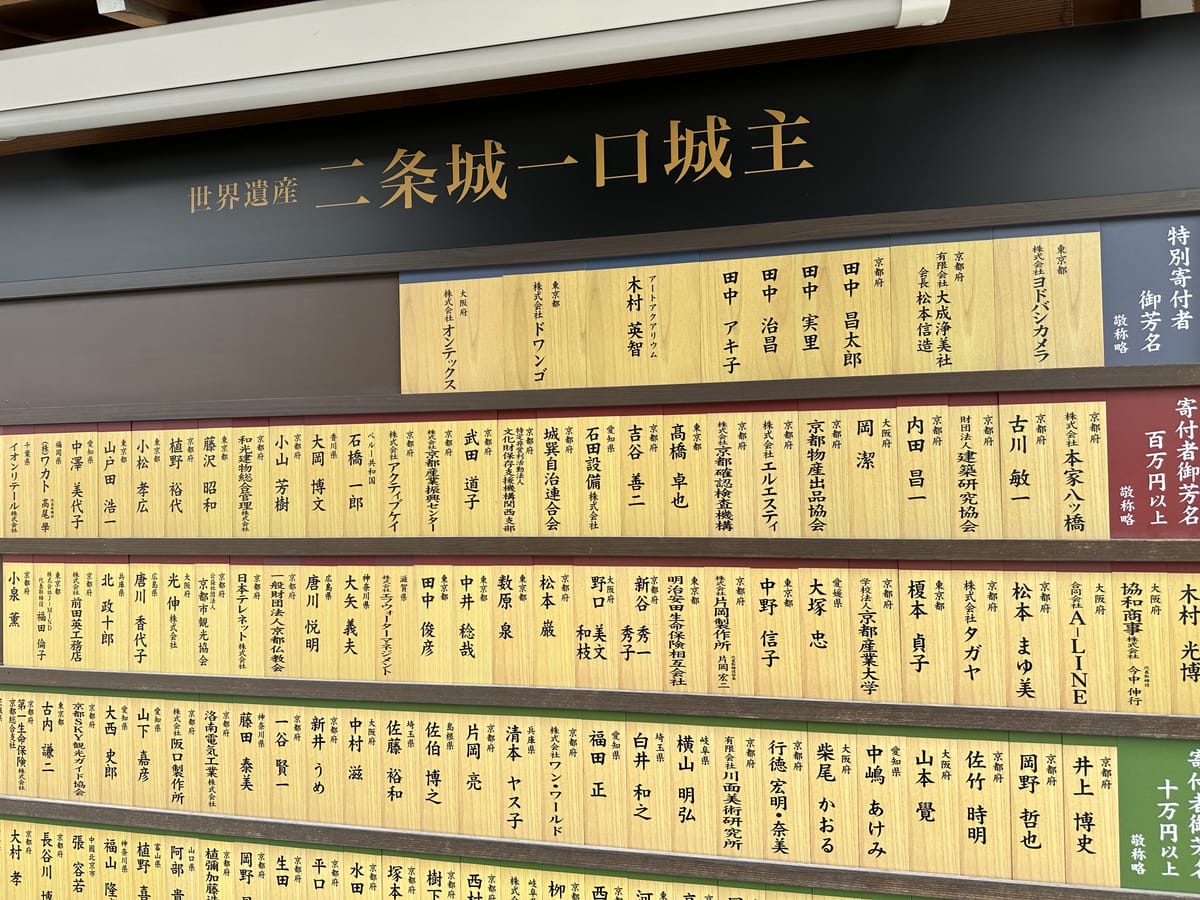 世界遺産 二条城一口城主
特別寄付者
御芳名
敬称略
東京都
株式会社ヨドバシカメラ
京都府
有限会社 大成浄美社
会長 松本信造
京都府
田中 昌太郎
田中 実里
田中 治昌
田中 アキ子
アートアクアリウム
木村 英智
東京都
株式会社ドワンゴ
大阪府
株式会社オンテックス
寄付者御芳名
百万円以上
敬称略
京都府
株式会社本家八ッ橋
京都府
古川 敏一
京都府
財団法人建築研究協会
京都府
内田 昌一
大阪府
岡 潔
京都府
京都物産出品協会
京都府
株式会社エルエスティ
京都府
株式会社京都確認検査機構
東京都
髙橋 卓也
京都府
吉谷 善二
愛知県
石田設備株式会社
京都府
城巽自治連合会
京都府
特定非営利活動法人
文化財保存支援機構関西支部
京都府
武田 道子
京都府
株式会社京都産業振興センター
京都府
株式会社アクティブケイ
ペルー共和国
石橋 一郎
香川県
大岡 博文
京都府
小山 芳樹
京都府
和光建物総合管理株式会社
東京都
藤沢 昭和
京都府
植野 裕代
東京都
小松 孝広
東京都
山戸田 浩一
愛知県
中澤 美代子
福岡県
(株)ワカト 代表取締役 高尾 學
千葉県
イオンリテール株式会社
木村 光博
大阪府
協和商事株式会社 代表取締役 今中 伸行
大阪府
合同会社A-LINE
京都府
松本 まゆ美
京都府
株式会社タガヤ
東京都
榎本 貞子
京都府
学校法人京都産業大学
愛媛県
大塚 忠
東京都
中野 信子
京都府
株式会社片岡製作所 代表取締役社長 片岡 宏二
東京都
明治安田生命保険相互会社
京都府
新谷 秀一
秀子
大阪府
野口 美文
和枝
京都府
松本 巌
東京都
数原 泉
東京都
中井 稔哉
東京都
田中 俊彦
滋賀県
株式会社エフウォーターマネジメント
神奈川県
大矢 義夫
広島県
唐川 悦明
京都府
一般財団法人京都仏教会
京都府
日本テレネット株式会社
京都府
公益社団法人
京都市観光協会
大阪府
光伸株式会社
広島県
唐川 香代子
兵庫県
北 政十郎
京都府
株式会社前田英工務店
東京都
株式会社J-MIND
代表取締役 福田 倫子
京都府
小泉 薫
寄付者御芳名
十万円以上
敬称略
京都府
井上 博史
京都府
岡野 哲也
京都府
佐竹 時明
大阪府
山本 覺
愛知県
中嶋 あけみ
大阪府
柴尾 かおる
京都府
行徳 宏明・奈美
京都府
有限会社川面美術研究所
岐阜県
横山 明弘
埼玉県
白井 和之
愛知県
福田 正
京都府
株式会社ワン・ワールド
兵庫県
清本 ヤス子
京都府
片岡 亮
島根県
佐伯 博之
埼玉県
佐藤 裕和
大阪府
中村 滋
京都府
新井 うめ
京都府
一谷 賢一
神奈川県
藤田 泰美
京都府
洛南電気工業株式会社
京都府
株式会社阪口製作所
愛知県
山下 嘉彦
愛知県
大西 史郎
京都府
京都SKY観光ガイド協会
東京都
古内 謙二
京都府
第一生命保険株式会社
京都総合支社
岐阜県
柳
京都府
西村
京都府
樹下
京都府
塚本
京都府
水田
京都府
平口
京都府
生田
京都府
岡野
京都府
植彌加藤造
山口県
阿部 貴
富山県
植野 喜
神奈川県
福山 隆
中國北京市
張 容若
京都府
長谷川 博
京都府
大村 孝